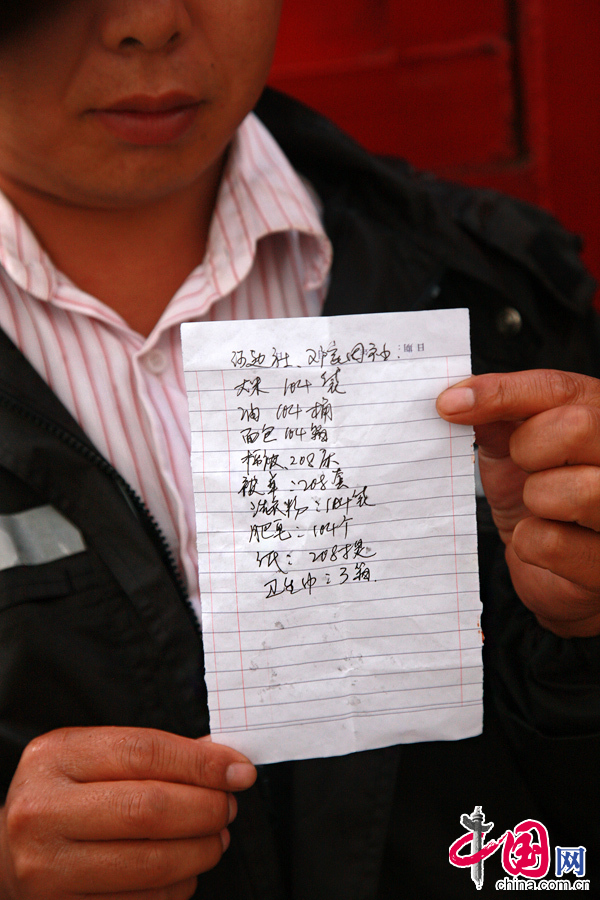 大米 104袋
油 104桶
面包 104箱
棉被 208床
被单：208套
洗衣粉：104袋
肥皂：104个
纸：208提
卫生巾：3箱
中国网
www.china.com.cn